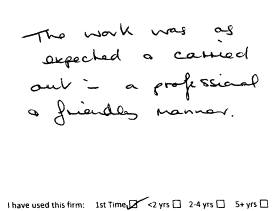 The work was as
expected & carried
out in a professional
& friendly manner.
I have used this firm: 1st Time ☑ <2 yrs ☐ 2-4 yrs ☐ 5+ yrs ☐